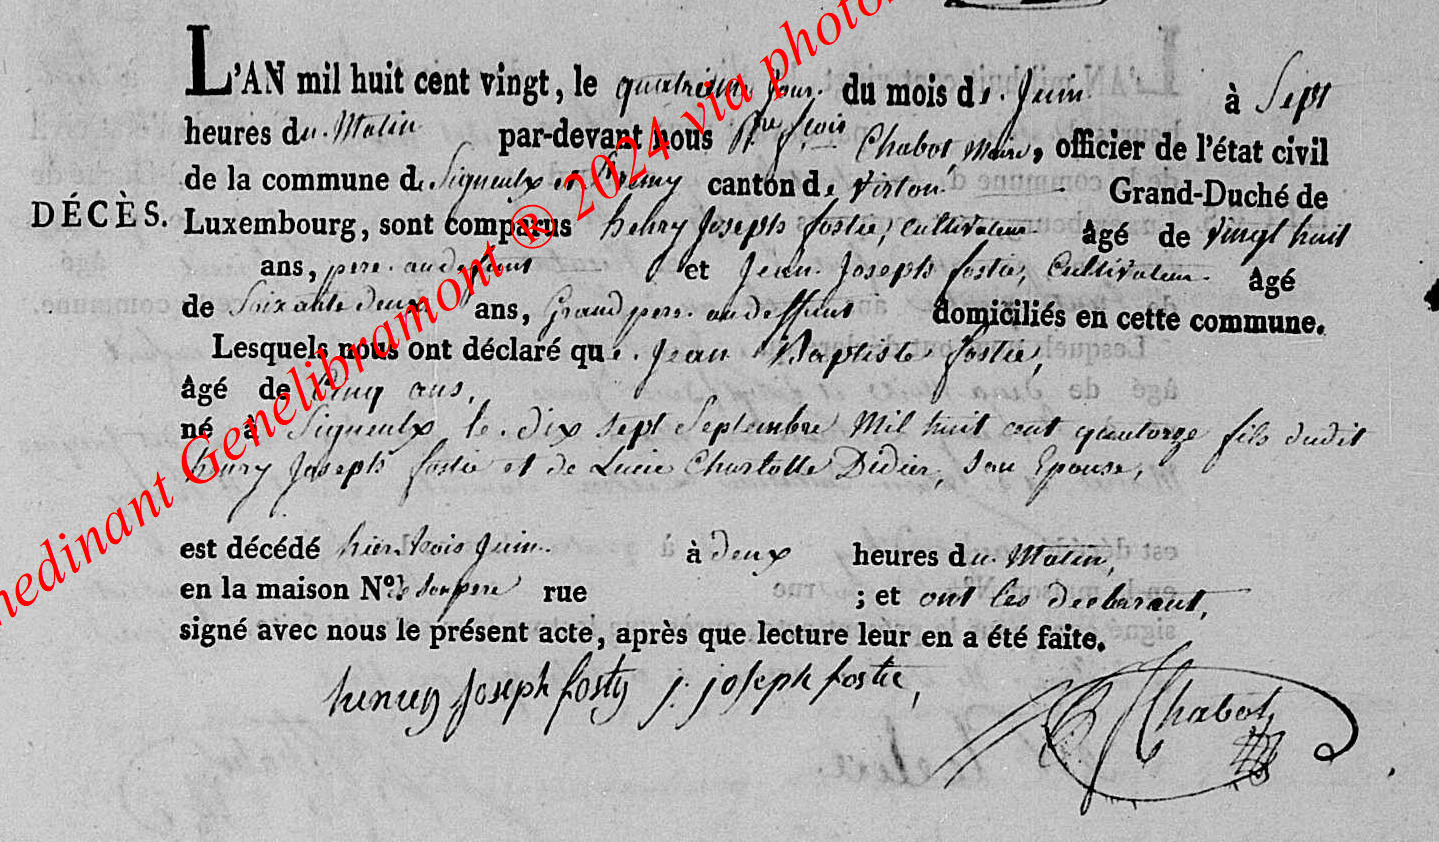 L'AN mil huit cent vingt, le quatrieme Jour du mois de Juin à Sept
heures du Matin par-devant nous Pre fcois Chabot Maire, officier de l'état civil
de la commune de Signeulx et canton de Virton Grand-Duché de
DÉCÈS.
Luxembourg, sont comparus henry Joseph fostie, Cultivateur âgé de Vingt huit
ans, pere au deffunt et Jean Joseph fostie, Cultivateur âgé
de Soixante deux ans, Grand pere au deffunt domiciliés en cette commune.
Lesquels nous ont déclaré que Jean Baptiste fostie,
âgé de Cinq ans,
né à Signeulx le dix sept Septembre Mil huit cent quatorze fils dudit
henry Joseph fostie et de Lucie Charlotte Didier, son Epouse,
est décédé hier trois Juin à deux heures du Matin,
en la maison N.º de son pere rue ; et ont les declarant,
signé avec nous le présent acte, après que lecture leur en a été faite.
henry Joseph fosty j. joseph fostie,
Chabot
nedinant Genelibramont ® 2024 via photo